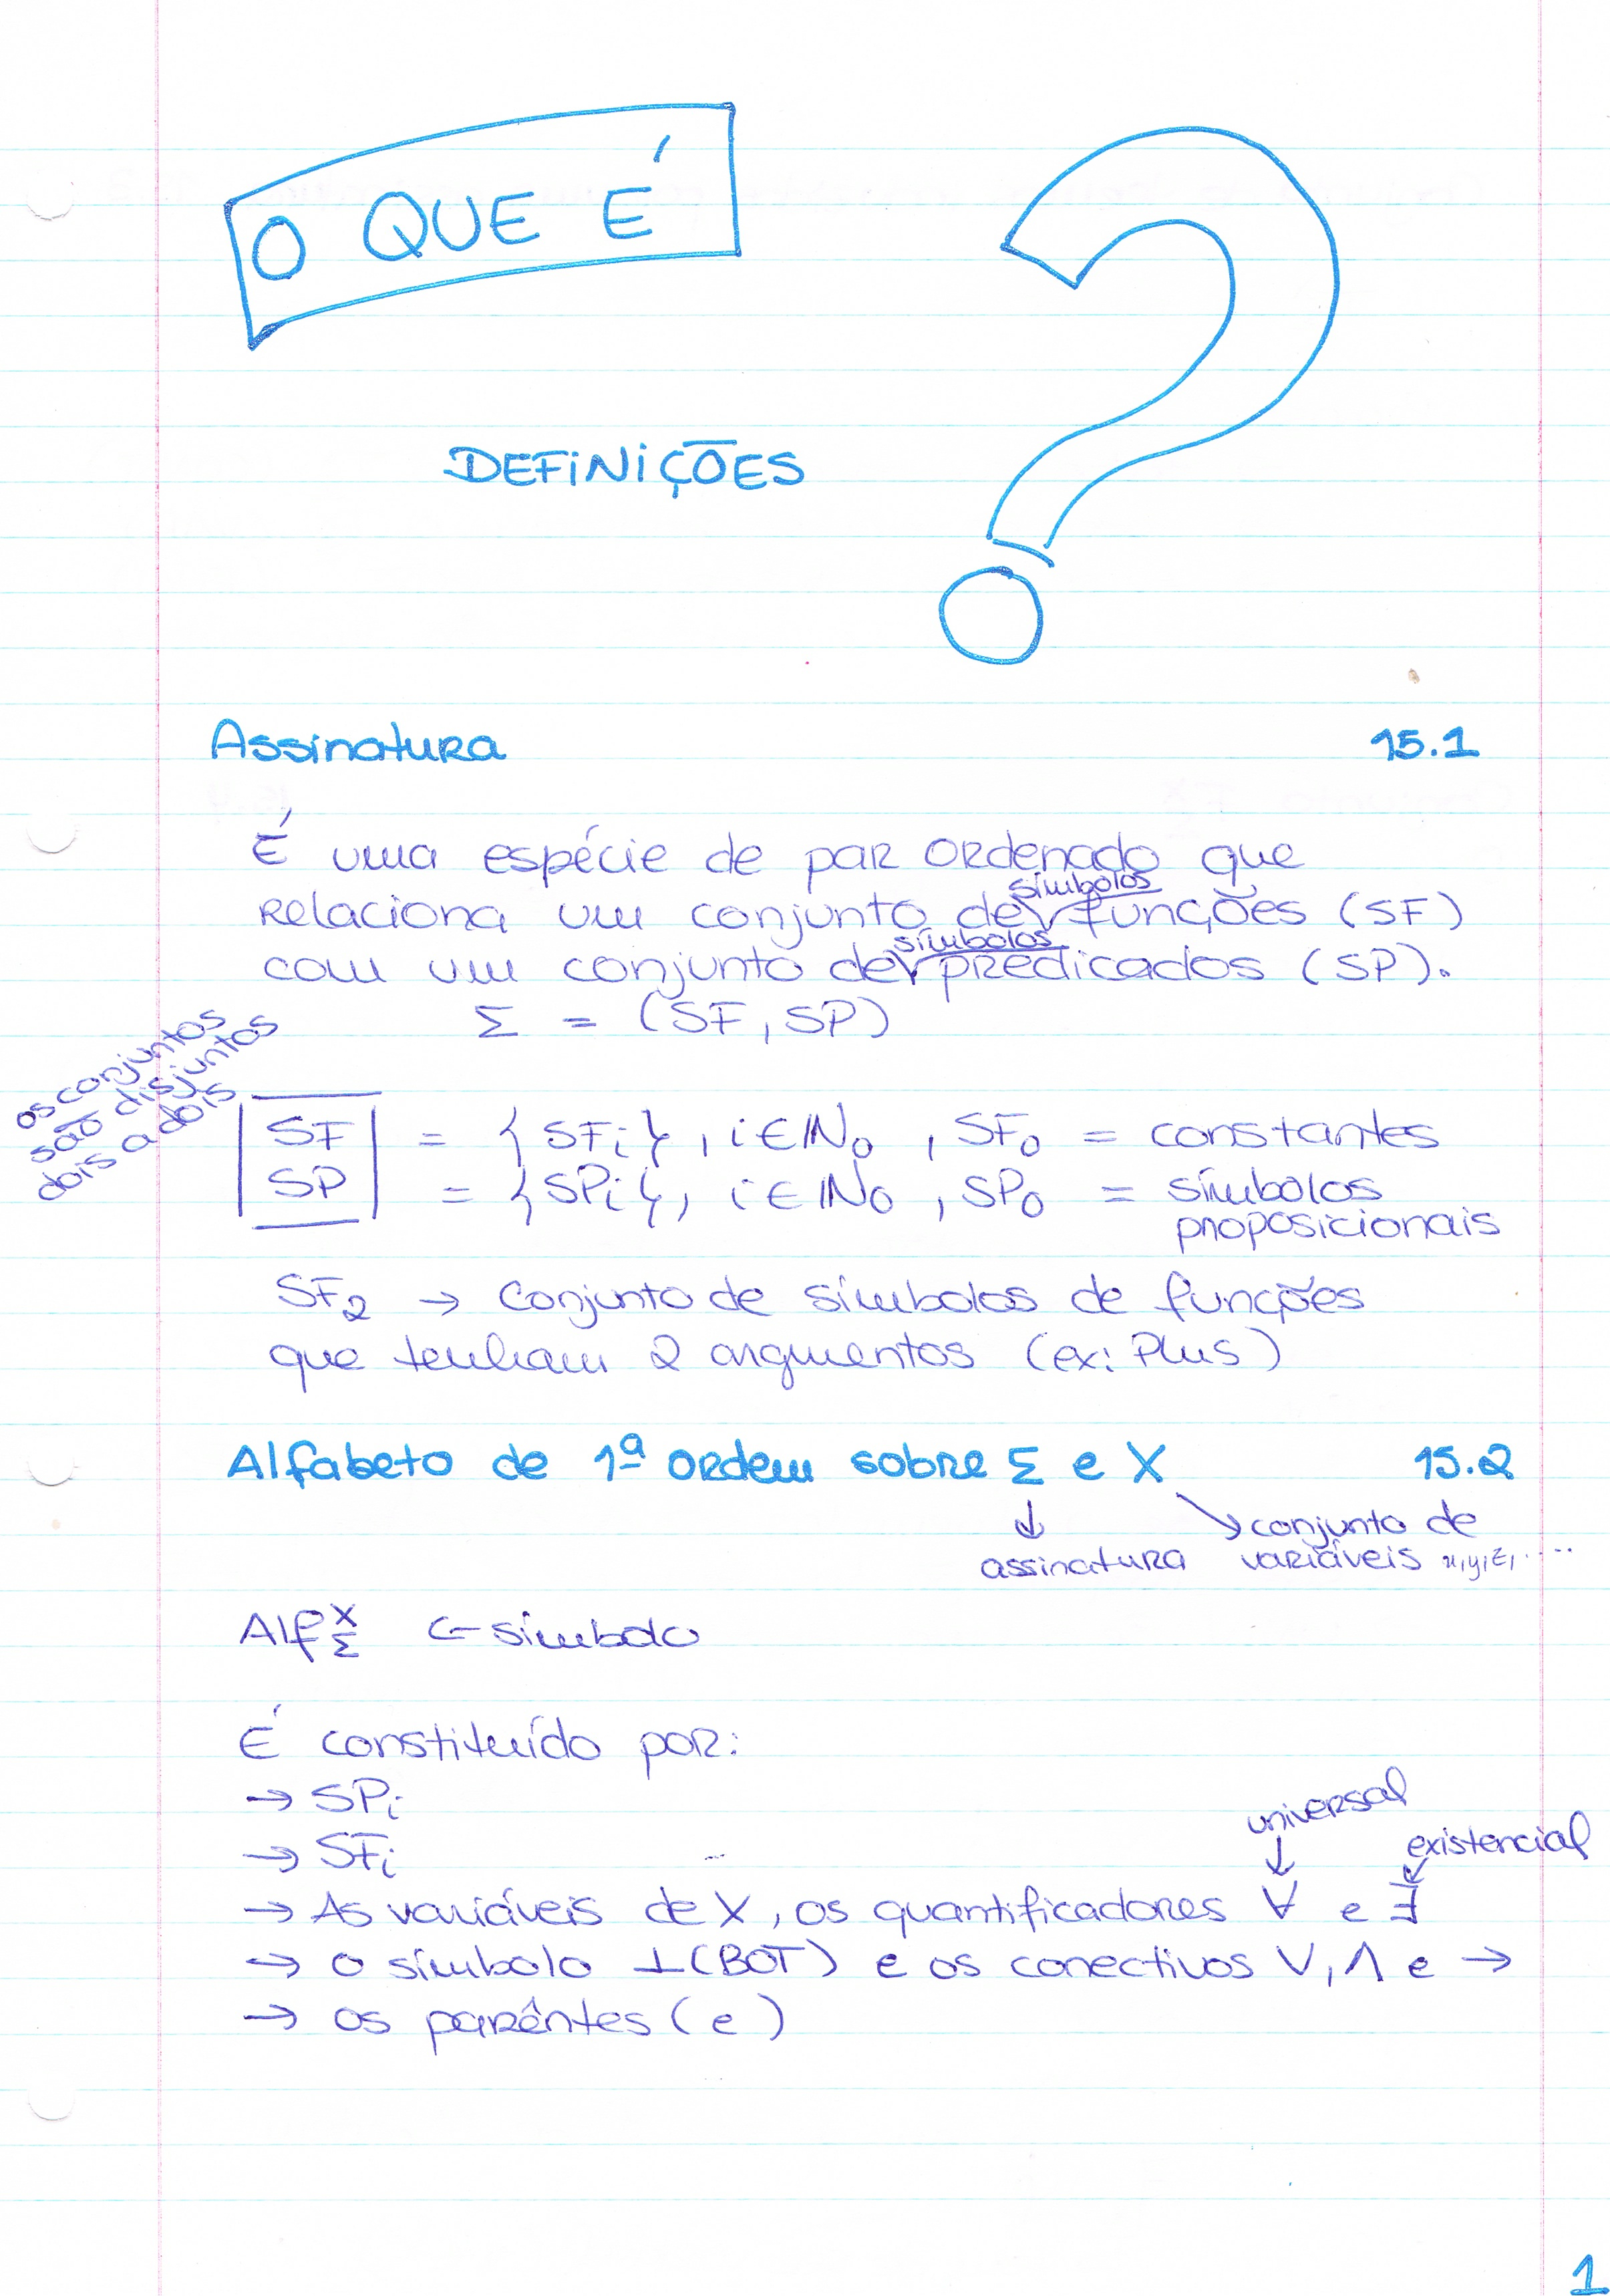 O QUE É
?
DEFINIÇÕES
Assinatura 15.1
É uma espécie de par ordenado que
relaciona um conjunto de símbolos funções (SF)
com um conjunto de símbolos predicados (SP).
Σ = (SF, SP)
os conjuntos
são disjuntos
dois a dois
SF = {SFi}, i ∈ ℕ₀, SF₀ = constantes
SP = {SPi}, i ∈ ℕ₀, SP₀ = símbolos
proposicionais
SF₂ → Conjunto de símbolos de funções
que tenham 2 argumentos (ex: Plus)
Alfabeto de 1ª ordem sobre Σ e X 15.2
↓ ↘ conjunto de
assinatura variáveis x,y,z,....
Alf X Σ ← símbolo
É constituído por:
→ SPi
universal
→ SFi
existencial
→ As variáveis de X, os quantificadores ∀ e ∃
→ o símbolo ⊥(BOT) e os conectivos ∨, ∧ e →
→ os parêntes ( e )
1